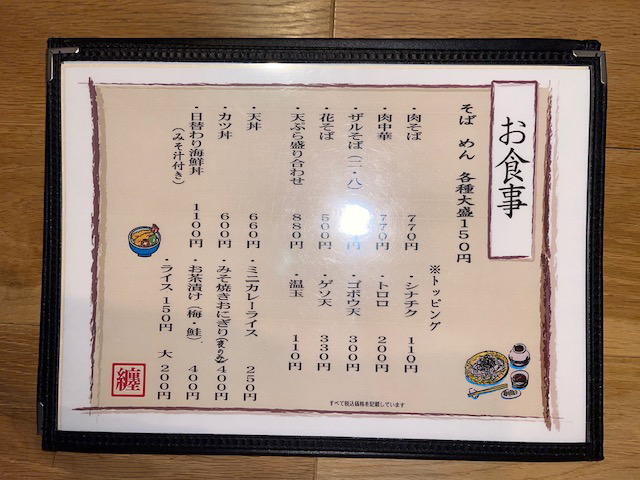 お食事
そば めん 各種大盛150円
・肉そば 770円
・肉中華 770円
・ザルそば（二・八）
・花そば 500円
・天ぷら盛り合わせ 880円
・天丼 660円
・カツ丼 600円
・日替わり海鮮丼 1100円
（みそ汁付き）
※トッピング
・シナチク 110円
・トロロ 200円
・ゴボウ天 300円
・ゲソ天 330円
・温玉 110円
・ミニカレーライス 250円
・みそ焼きおにぎり（夜のみ） 400円
・お茶漬け（梅・鮭） 400円
・ライス 150円 大 200円
すべて税込価格を記載しています
纏